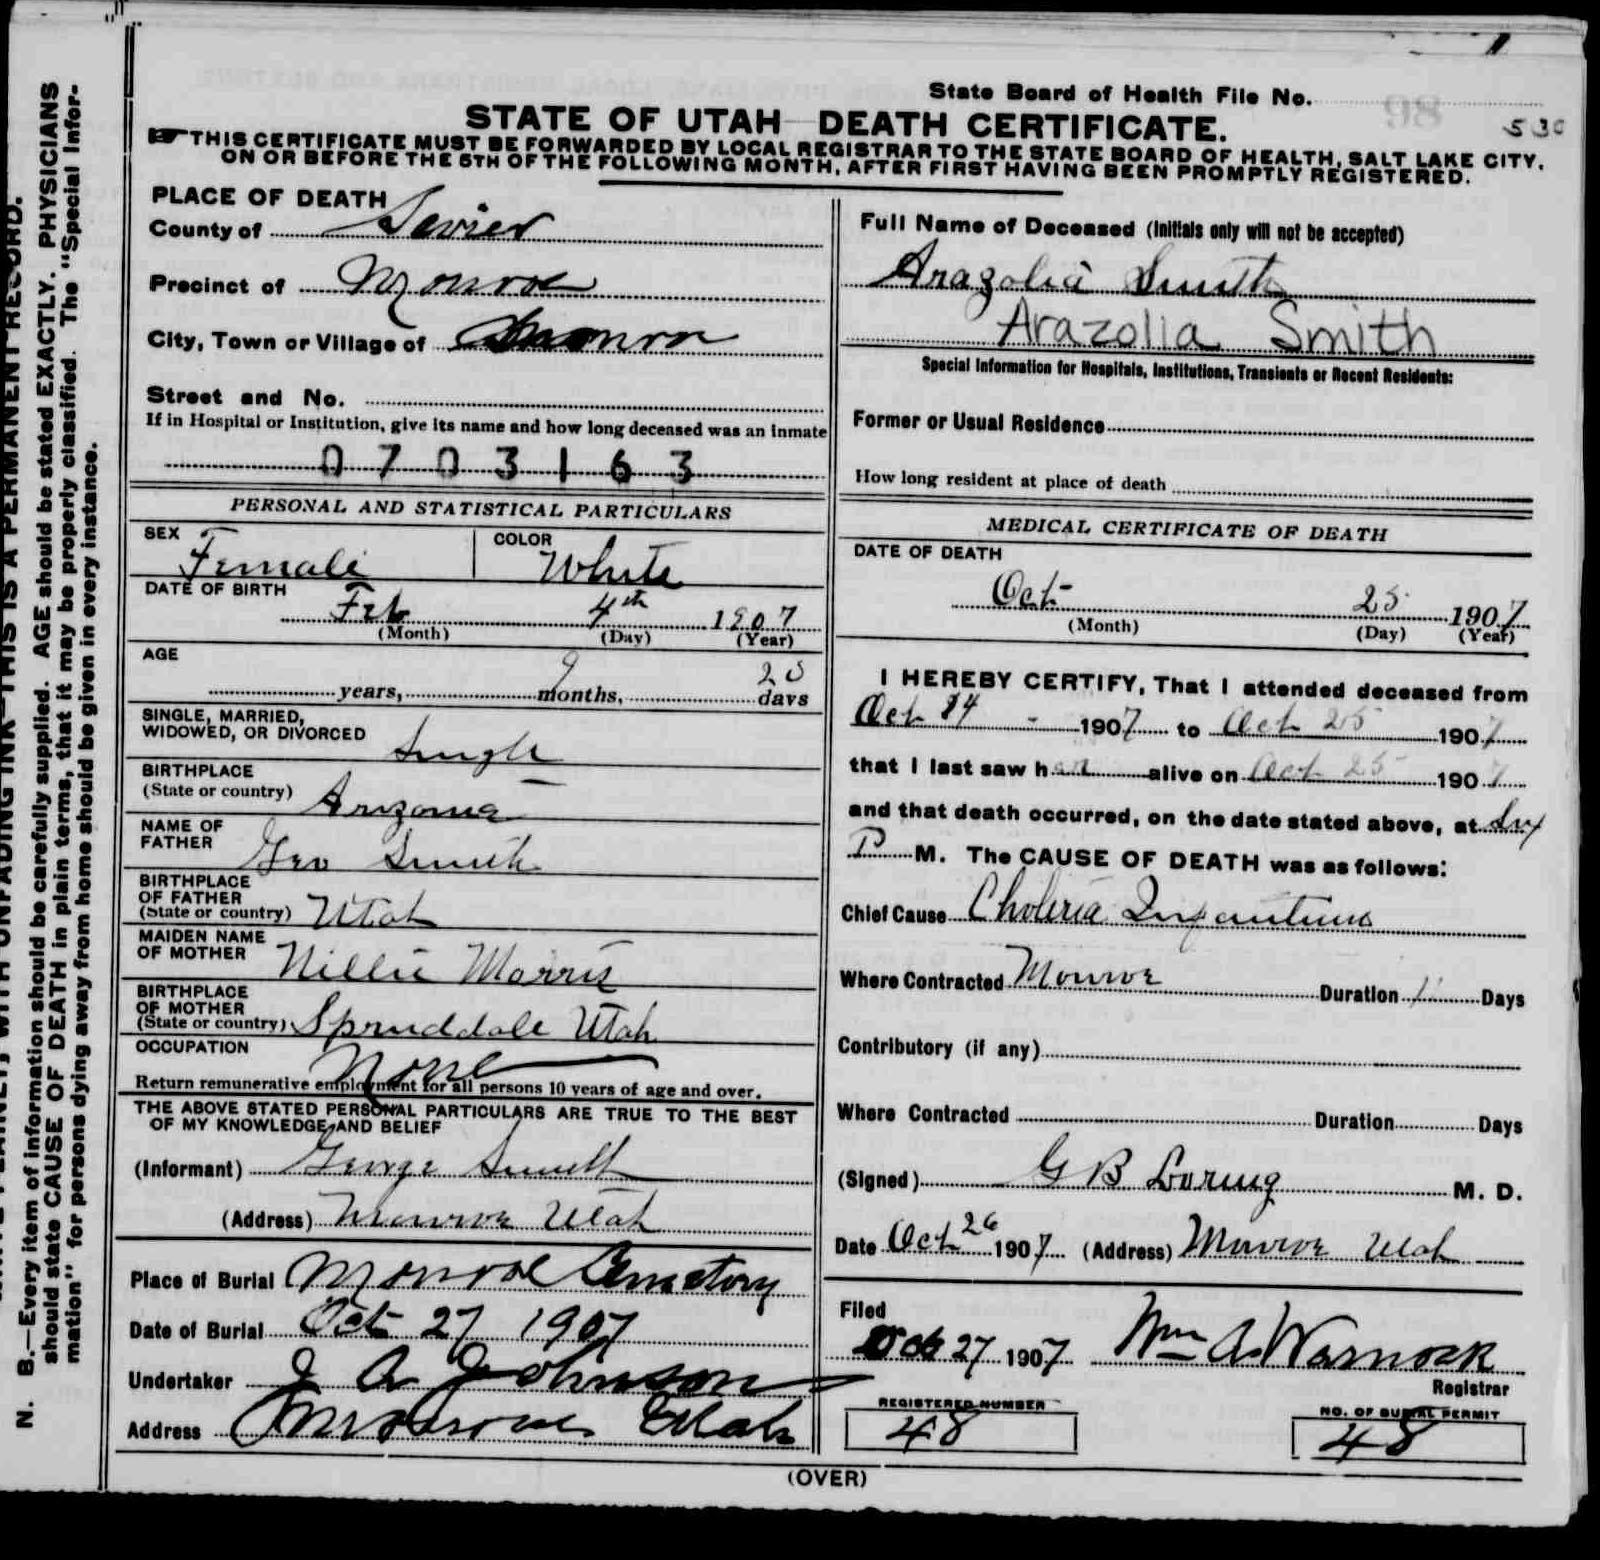 State Board of Health File No. 98
530
STATE OF UTAH DEATH CERTIFICATE.
THIS CERTIFICATE MUST BE FORWARDED BY LOCAL REGISTRAR TO THE STATE BOARD OF HEALTH, SALT LAKE CITY,
ON OR BEFORE THE 5TH OF THE FOLLOWING MONTH, AFTER FIRST HAVING BEEN PROMPTLY REGISTERED.
N. B.—Every item of information should be carefully supplied. AGE should be stated EXACTLY. PHYSICIANS
should state CAUSE OF DEATH in plain terms, that it may be properly classified. The "Special Infor-
mation" for persons dying away from home should be given in every instance.
PLACE OF DEATH
County of Sevier
Precinct of Monroe
City, Town or Village of Monroe
Street and No.
If in Hospital or Institution, give its name and how long deceased was an inmate
0703163
PERSONAL AND STATISTICAL PARTICULARS
SEX Female
COLOR White
DATE OF BIRTH
Feb 4th 1907
(Month) (Day) (Year)
AGE
years, 9 months, 20 days
SINGLE, MARRIED,
WIDOWED, OR DIVORCED Single
BIRTHPLACE
(State or country) Arizona
NAME OF
FATHER Geo Smith
BIRTHPLACE
OF FATHER
(State or country) Utah
MAIDEN NAME
OF MOTHER Nillie Morris
BIRTHPLACE
OF MOTHER
(State or country) Spruddale Utah
OCCUPATION None
Return remunerative employment for all persons 10 years of age and over.
THE ABOVE STATED PERSONAL PARTICULARS ARE TRUE TO THE BEST
OF MY KNOWLEDGE AND BELIEF
(Informant) George Smith
(Address) Monroe Utah
Place of Burial Monroe Cemetery
Date of Burial Oct 27 1907
Undertaker J A Johnson
Address Monroe Utah
Full Name of Deceased (Initials only will not be accepted)
Arazolia Smith
Arazolia Smith
Special Information for Hospitals, Institutions, Transients or Recent Residents:
Former or Usual Residence
How long resident at place of death
MEDICAL CERTIFICATE OF DEATH
DATE OF DEATH
Oct 25 1907
(Month) (Day) (Year)
I HEREBY CERTIFY, That I attended deceased from
Oct 24 1907 to Oct 25 1907
that I last saw her alive on Oct 25 1907
and that death occurred, on the date stated above, at Six
P M. The CAUSE OF DEATH was as follows:
Chief Cause Choleria Infantum
Where Contracted Monroe Duration Days
Contributory (if any)
Where Contracted Duration Days
(Signed) G B Loring M. D.
Date Oct 26 1907 (Address) Monroe Utah
Filed
Oct 27 1907 Wm A Warnock
Registrar
REGISTERED NUMBER
48
NO. OF BURIAL PERMIT
48
(OVER)